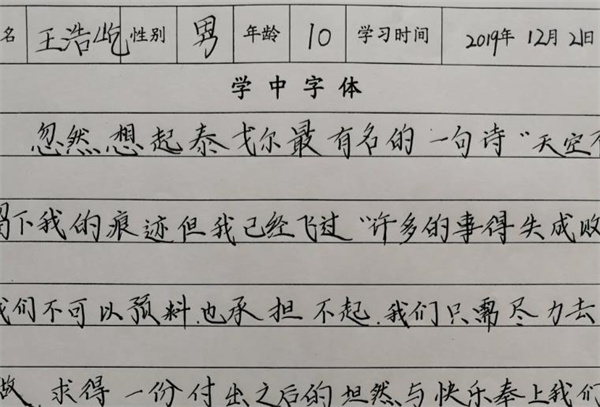 名 王浩屹 性别 男 年龄 10 学习时间 2019年 12月 21日
学中字体
忽然想起泰戈尔最有名的一句诗“天空不
留下我的痕迹但我已经飞过“许多的事得失成败
我们不可以预料.也承担不起.我们只需尽力去
做 求得一份付出之后的坦然与快乐奉上我们